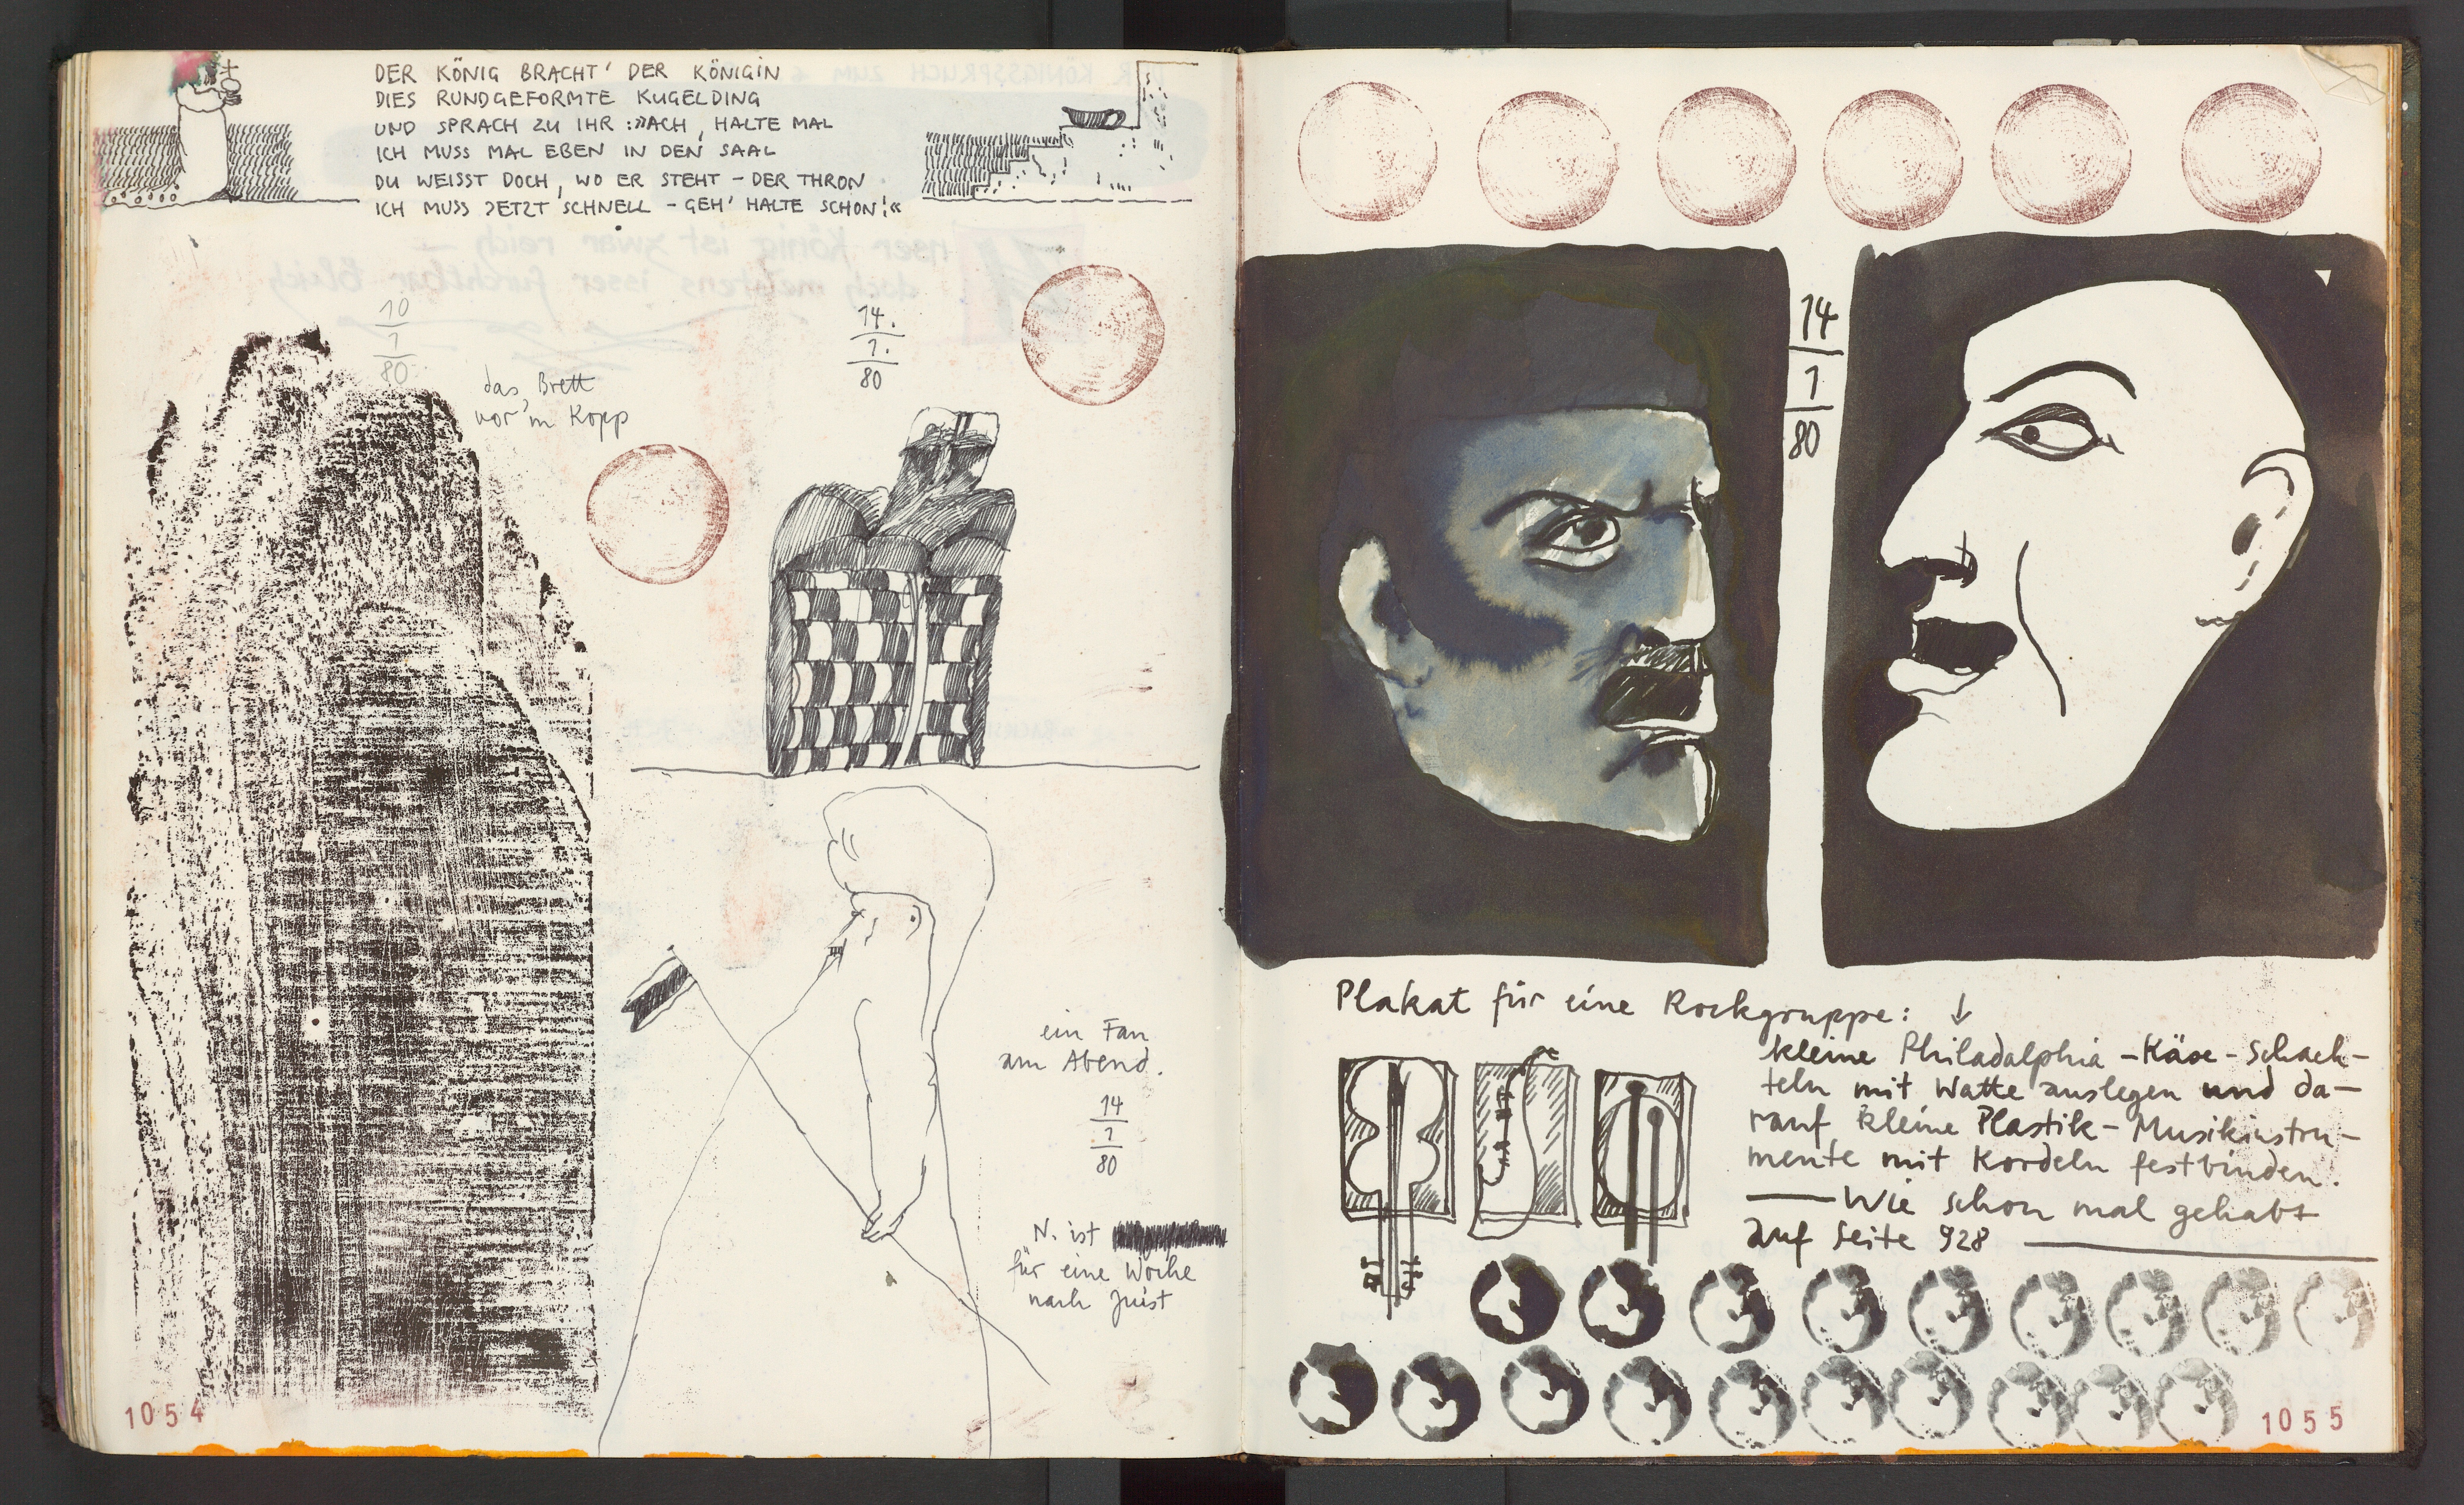 DER KÖNIG BRACHT' DER KÖNIGIN
DIES RUNDGEFORMTE KUGELDING
UND SPRACH ZU IHR :»ACH, HALTE MAL
ICH MUSS MAL EBEN IN DEN SAAL
DU WEISST DOCH, WO ER STEHT – DER THRON
ICH MUSS JETZT SCHNELL – GEH' HALTE SCHON!«
10
1
80
das Brett
vor'm Kopp
14.
1.
80
ein Fan
am Abend.
14
1
80
N. ist
für eine Woche
nach Juist
1054
14
1
80
Plakat für eine Rockgruppe: ↓
kleine Philadalphia-Käse-Schach-
teln mit Watte auslegen und da-
rauf kleine Plastik-Musikinstru-
mente mit Kordeln festbinden.
— Wie schon mal gehabt
auf Seite 928 —
1055